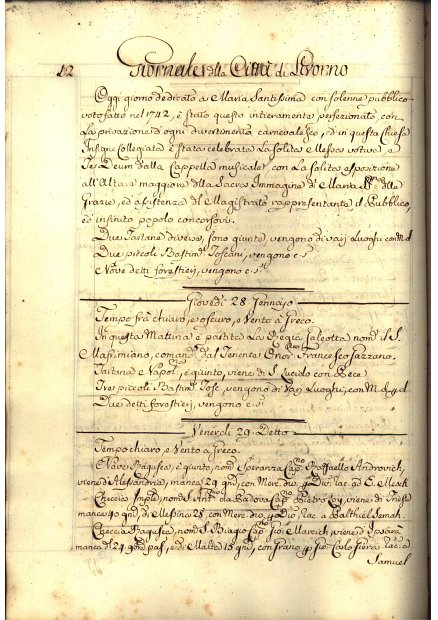 12 Giornale della Città di Livorno
Oggi giorno dedicato a Maria Santissima con solenne pubblico
voto fatto nel 1742, è stato questo intieramente perfezionato, con
la privazione d'ogni divertimento carnevalesco, ed in questa Chiesa
Insigne Collegiata è stata celebrata la solita Messa votiva e
Te Deum dalla Cappella musicale, con la solita esposizione
all'Altar maggiore della Sacra Immagine di Maria SS.ma delle
Grazie, ed assistenza del Magistrato rappresentante il Pubblico,
ed infinito popolo concorsovi.
Due Tartane diverse, sono giunte, vengono di varj Luoghi con M. d.
Due piccoli Bastim.ti Toscani, vengono e s.
Nove detti forestieri, vengono e s.
Giovedì 28 Gennajo
Tempo frà chiaro, e oscuro, e Vento a Greco.
In questa Matina è partita la Regia Galeotta nom.a il S.
Massimiano, comand.a dal Tenente Onor.o Francesco Sazzano.
Tartana Napol. è giunta, viene di S. Lucido con Pece
Tre piccoli Bastim.ti Tosc. vengono di Varj Luoghi, con M. d.
Due detti forestieri, vengono e s.
Venerdì 29 Detto
Tempo chiaro, e Vento a Greco.
Nave Ragusea, è giunta, nom.a Speranza Cap.no Raffaello Androvich,
viene di Alessandria, manca 29 gni, con Merc. div.
Checcia Imp.le nom.a S. Ant.o da Padova Cap.no Pietro viene di Trieste
manca 40 gni, di Messina 28, con Merc. div.
Checcia Ragusea, nom.a S. Biagio Cap.no Gio. viene d'Ipsara
manca di 24 e di Malta 15 gni, con Grano Gio. Carlo
Samuel